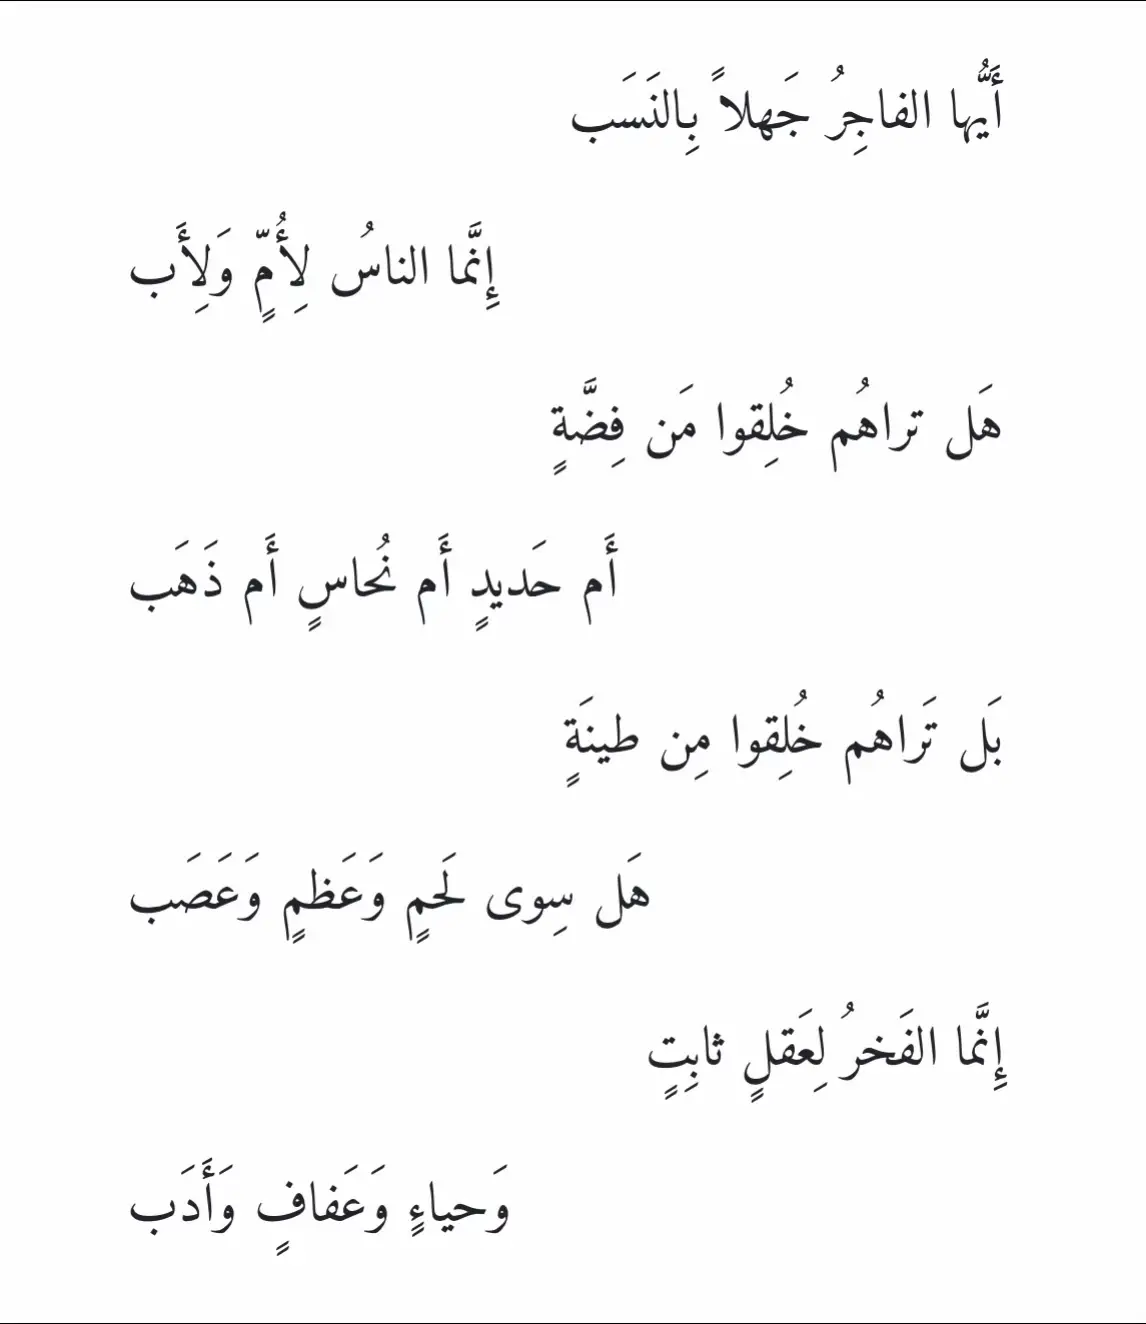 أَيُّها الفاجِرُ جَهلاً بِالنَسَب
إِنَّما الناسُ لِأُمٍّ وَلِأَب
هَل تراهُم خُلِقوا مَن فِضَّةٍ
أَم حَديدٍ أَم نُحاسٍ أَم ذَهَب
بَل تَراهُم خُلِقوا مِن طينَةٍ
هَل سِوى لَحمٍ وَعَظمٍ وَعَصَب
إِنَّما الفَخرُ لِعَقلٍ ثابِتٍ
وَحياءٍ وَعَفافٍ وَأَدَب